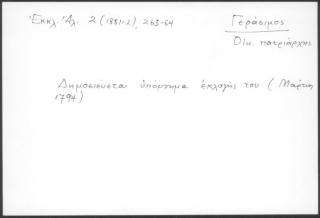 Ἐκκλ. Ἀλ. 2 (1881-2), 263-64
Γεράσιμος
Οἰκ. πατριάρχης
Δημοσιεύεται ὑπόμνημα ἐκλογῆς του (Μάρτιος
1794)